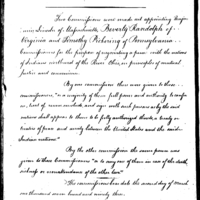 Two Commissions were made out appointing Benja-
min Lincoln of Massachusetts, Beverly Randolph of
Virginia and Timothy Pickering of Pennsylvania
Commissioners for the purpose of negotiating a peace with the nations
of Indians northwest of the River Ohio, on principles of mutual
justice and concession.
By one commission there was given to these
commissioners "or a majority of them full power and authority to confer
on, treat of, and sign with such persons as by the said
nations shall appear to them to be fully authorized thereto, a treaty or
treaties of peace and amity between the United States and the said
Indian nations."
By the other commission the same power was
given to these Commissioners "or to any one of them in case of the death,
sickness or of the other two."
The commissions bear date the second day of March
one thousand seven hundred and ninety three.